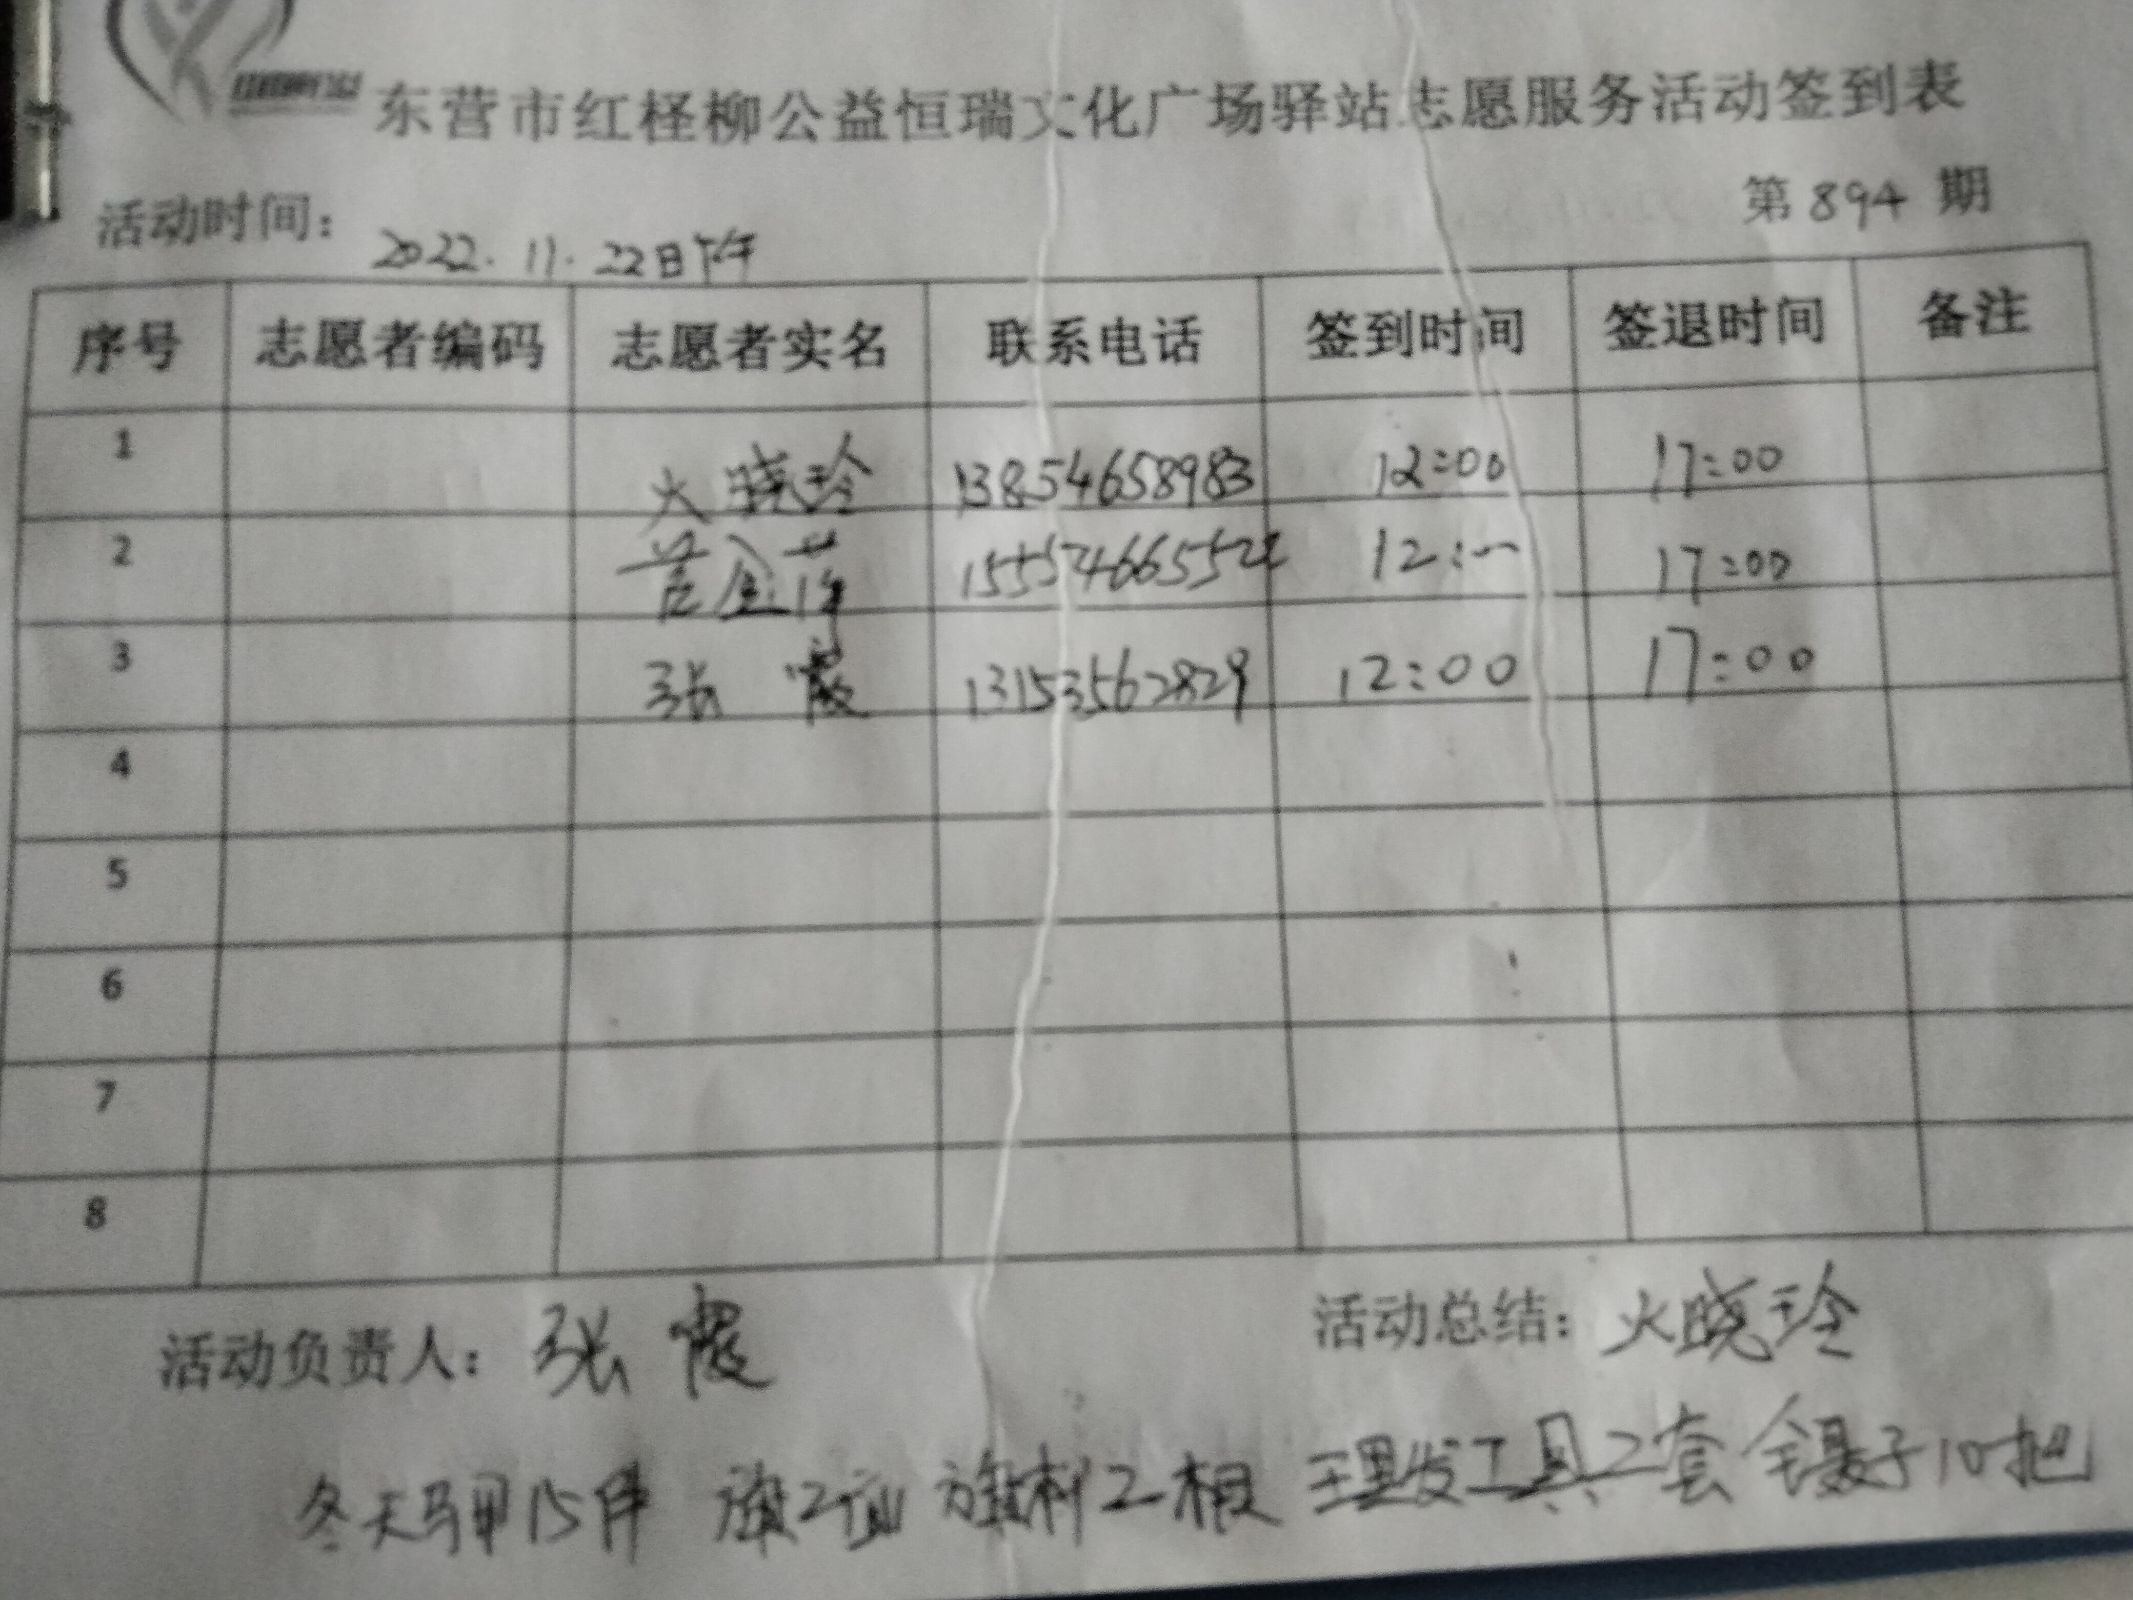 东营市红柽柳公益恒瑞文化广场驿站志愿服务活动签到表
第894期
活动时间: 2022.11.22日下午
序号 志愿者编码 志愿者实名 联系电话 签到时间 签退时间 备注
1 火晓玲 13854658983 12:00 17:00
2 12: 17:00
3 张霞 13153562829 12:00 17:00
4
5
6
7
8
活动负责人: 张霞 活动总结: 火晓玲
冬天马甲15件 旗2面 旗杆2根 理发工具2套 镊子10把